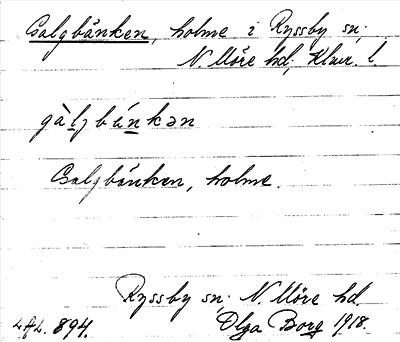 Galgbänken, holme i Ryssby sn;
N. Möre hd; Klmr. l.
gàljbäŋkən
Galgbänken, holme.
Ryssby sn; N. Möre hd.
L.A.L. 894. Olga Borg 1918.